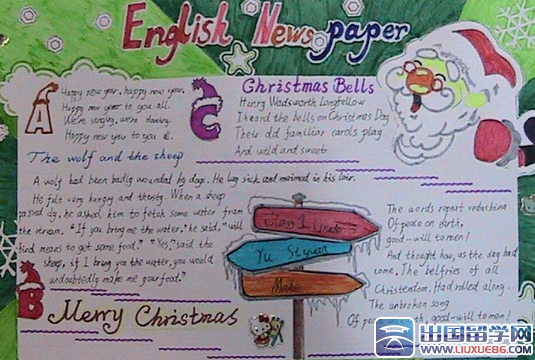 English Newspaper
A
Happy new year, happy new year,
Happy new year to you all.
We're singing, we're dancing.
Happy new year to you all.
C
Christmas Bells
Henry Wadsworth Longfellow
I heard the bells on Christmas Day
Their old familiar carols play
And wild and sweet
The wolf and the sheep
A wolf had been badly wounded by dogs. He lay sick and maimed in his lair.
He felt very hungry and thirsty. When a sheep
passed by, he asked him to fetch some water from
the stream. "If you bring me the water," he said, "I will
find means to get some food." "Yes," said the
sheep, if I bring you the water, you would
undoubtedly make me your food."
B
Merry Christmas
Class 1
Yu Siyuan
Make
The words repeat
Of peace on earth,
good-will to men!
And thought how, as the day had
come, The belfries of all
Christendom, Had rolled along.
The unbroken song
Of peace on earth, good-will to men!
出国留学网
WWW.LIUXUE86.COM